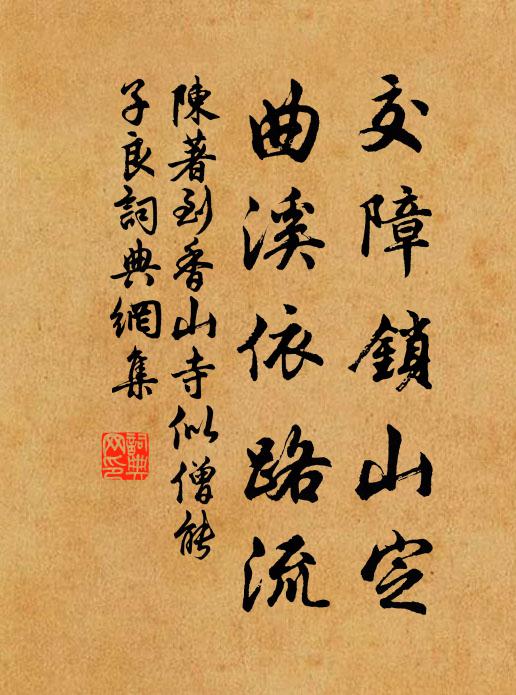 交障鎖山定
曲溪依路流
陳著到香山寺似僧能
子良詞典網集
詞典
网印